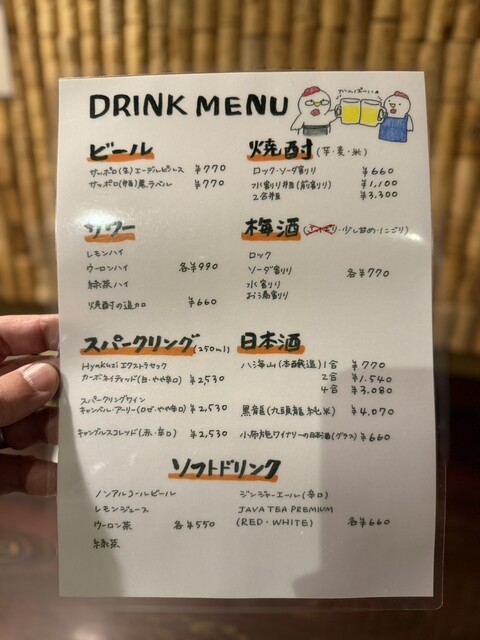 DRINK MENU
かんぱーい
ビール
サッポロ(生)エーデルピルス ¥770
サッポロ(中瓶)黒ラベル ¥770
焼酎(芋・麦・米)
ロック・ソーダ割り ¥660
水割り ¥1,100
2合 ¥3,300
サワー
レモンハイ
ウーロンハイ 各¥990
緑茶ハイ
焼酎の追加 ¥660
梅酒(さっぱり・少し甘め・にごり)
ロック
ソーダ割り 各¥770
水割り
お湯割り
スパークリング(250ml)
Hyakuzi エクストラセック
カーボネイティッド(白・やや辛口) ¥2,530
スパークリングワイン
キャンベル・アーリー(ロゼ・やや辛口) ¥2,530
キャンブルスコレッド(赤・辛口) ¥2,530
日本酒
八海山(本醸造)1合 ¥770
2合 ¥1,540
4合 ¥3,080
黒龍(九頭龍純米) ¥4,070
ワイナリーの日本酒(グラス) ¥660
ソフトドリンク
ノンアルコールビール
レモンジュース
ウーロン茶 各¥550
緑茶
ジンジャーエール(辛口)
JAVA TEA PREMIUM
(RED・WHITE) 各¥660